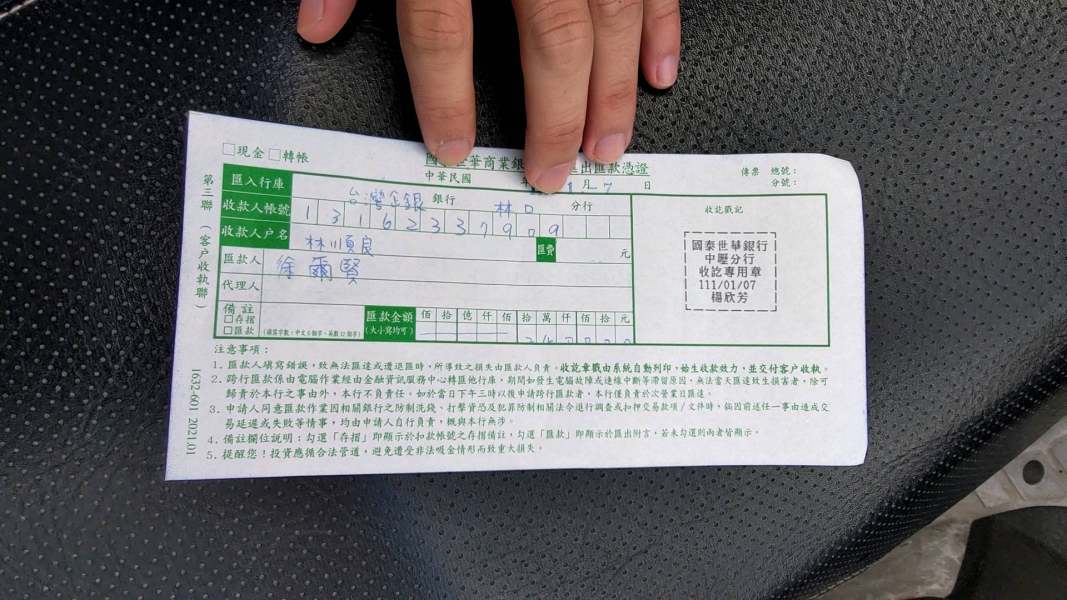 □現金 □轉帳
國 華商業銀 出匯款憑證
中華民國 1月 7 日
傳票 總號：
分號：
第三聯（客戶收執聯）
匯入行庫 台灣企銀 銀行 林口 分行
收款人帳號 13162337909
收款人戶名 林順良
匯費 元
匯款人 徐爾賢
代理人
備註
□存摺
□匯款
（填寫字數：中文6個字，英數12個字）
匯款金額
（大小寫均可）
佰 拾 億 仟 佰 拾 萬 仟 佰 拾 元
收訖戳記
國泰世華銀行
中壢分行
收訖專用章
111/01/07
楊欣芳
注意事項：
1. 匯款人填寫錯誤，致無法匯達或遭退匯時，所導致之損失由匯款人負責。收訖章戳由系統自動列印，始生收款效力，並交付客戶收執。
2. 跨行匯款係由電腦作業經由金融資訊服務中心轉匯他行庫，期間如發生電腦故障或連線中斷等滯留原因，無法當天匯達致生損害者，除可
歸責於本行之事由外，本行不負責任。如於當日下午三時以後申請跨行匯款者，本行僅負責於次營業日匯達。
3. 申請人同意匯款作業因相關銀行之防制洗錢、打擊資恐及犯罪防制相關法令進行調查或扣押交易款項/文件時，倘因前述任一事由造成交
易延遲或失敗等情事，均由申請人自行負責，概與本行無涉。
4. 備註欄位說明：勾選「存摺」即顯示於扣款帳號之存摺備註，勾選「匯款」即顯示於匯出附言，若未勾選則兩者皆顯示。
5. 提醒您！投資應循合法管道，避免遭受非法吸金情形而致重大損失。
1632-601 2021.01